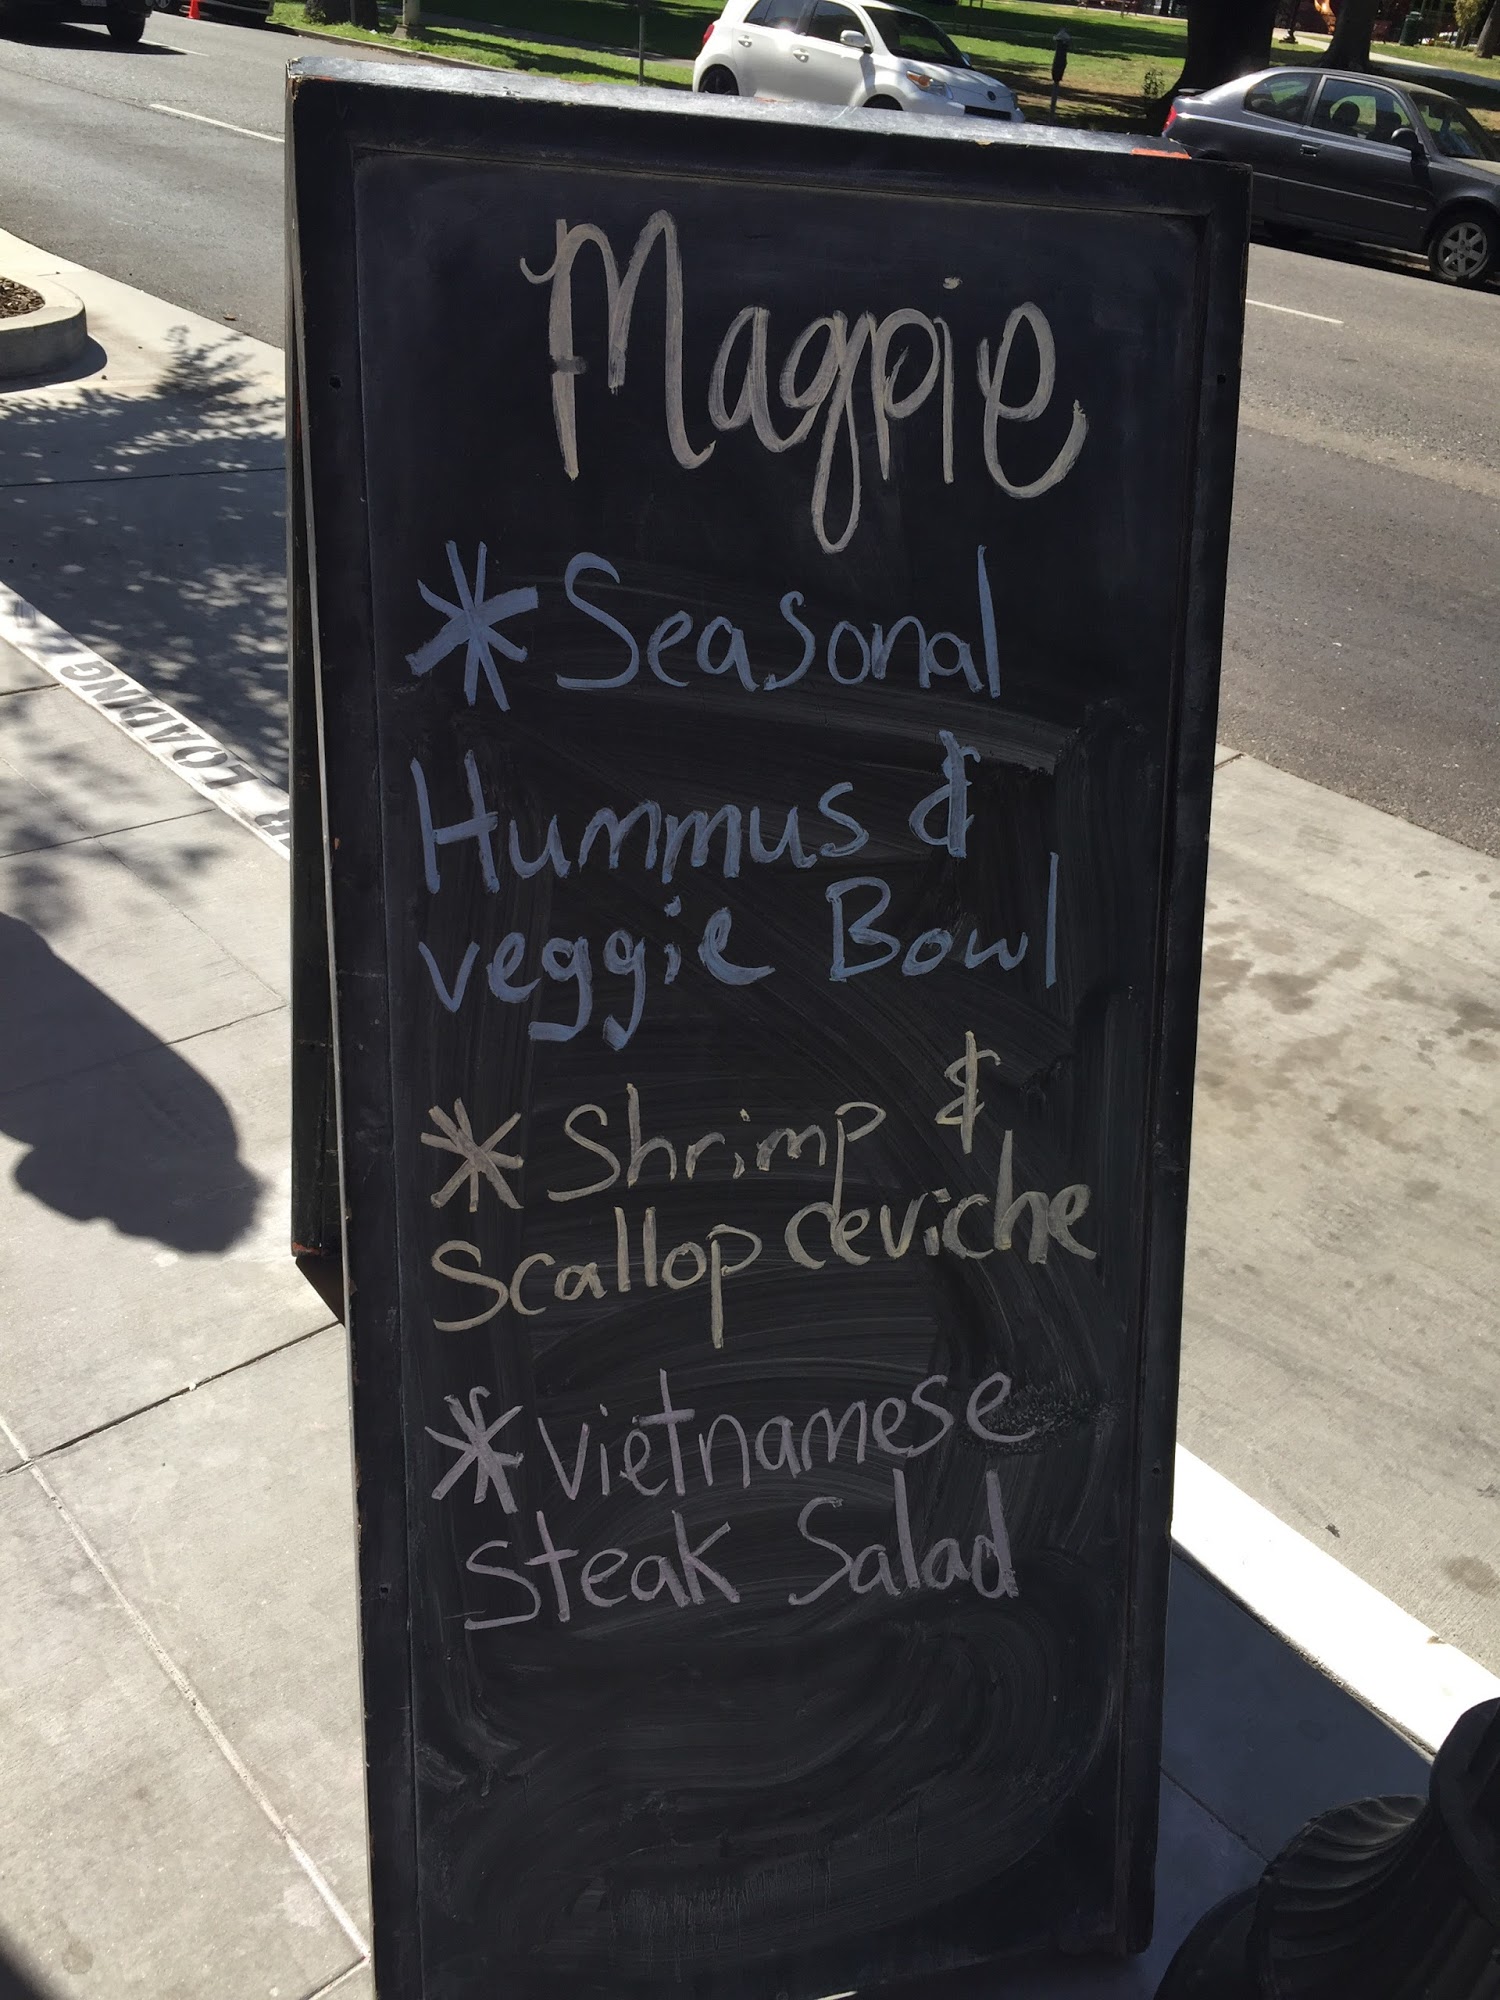 Magpie
* Seasonal
Hummus &
veggie Bowl
* Shrimp &
Scallop ceviche
* Vietnamese
Steak Salad
LOADING